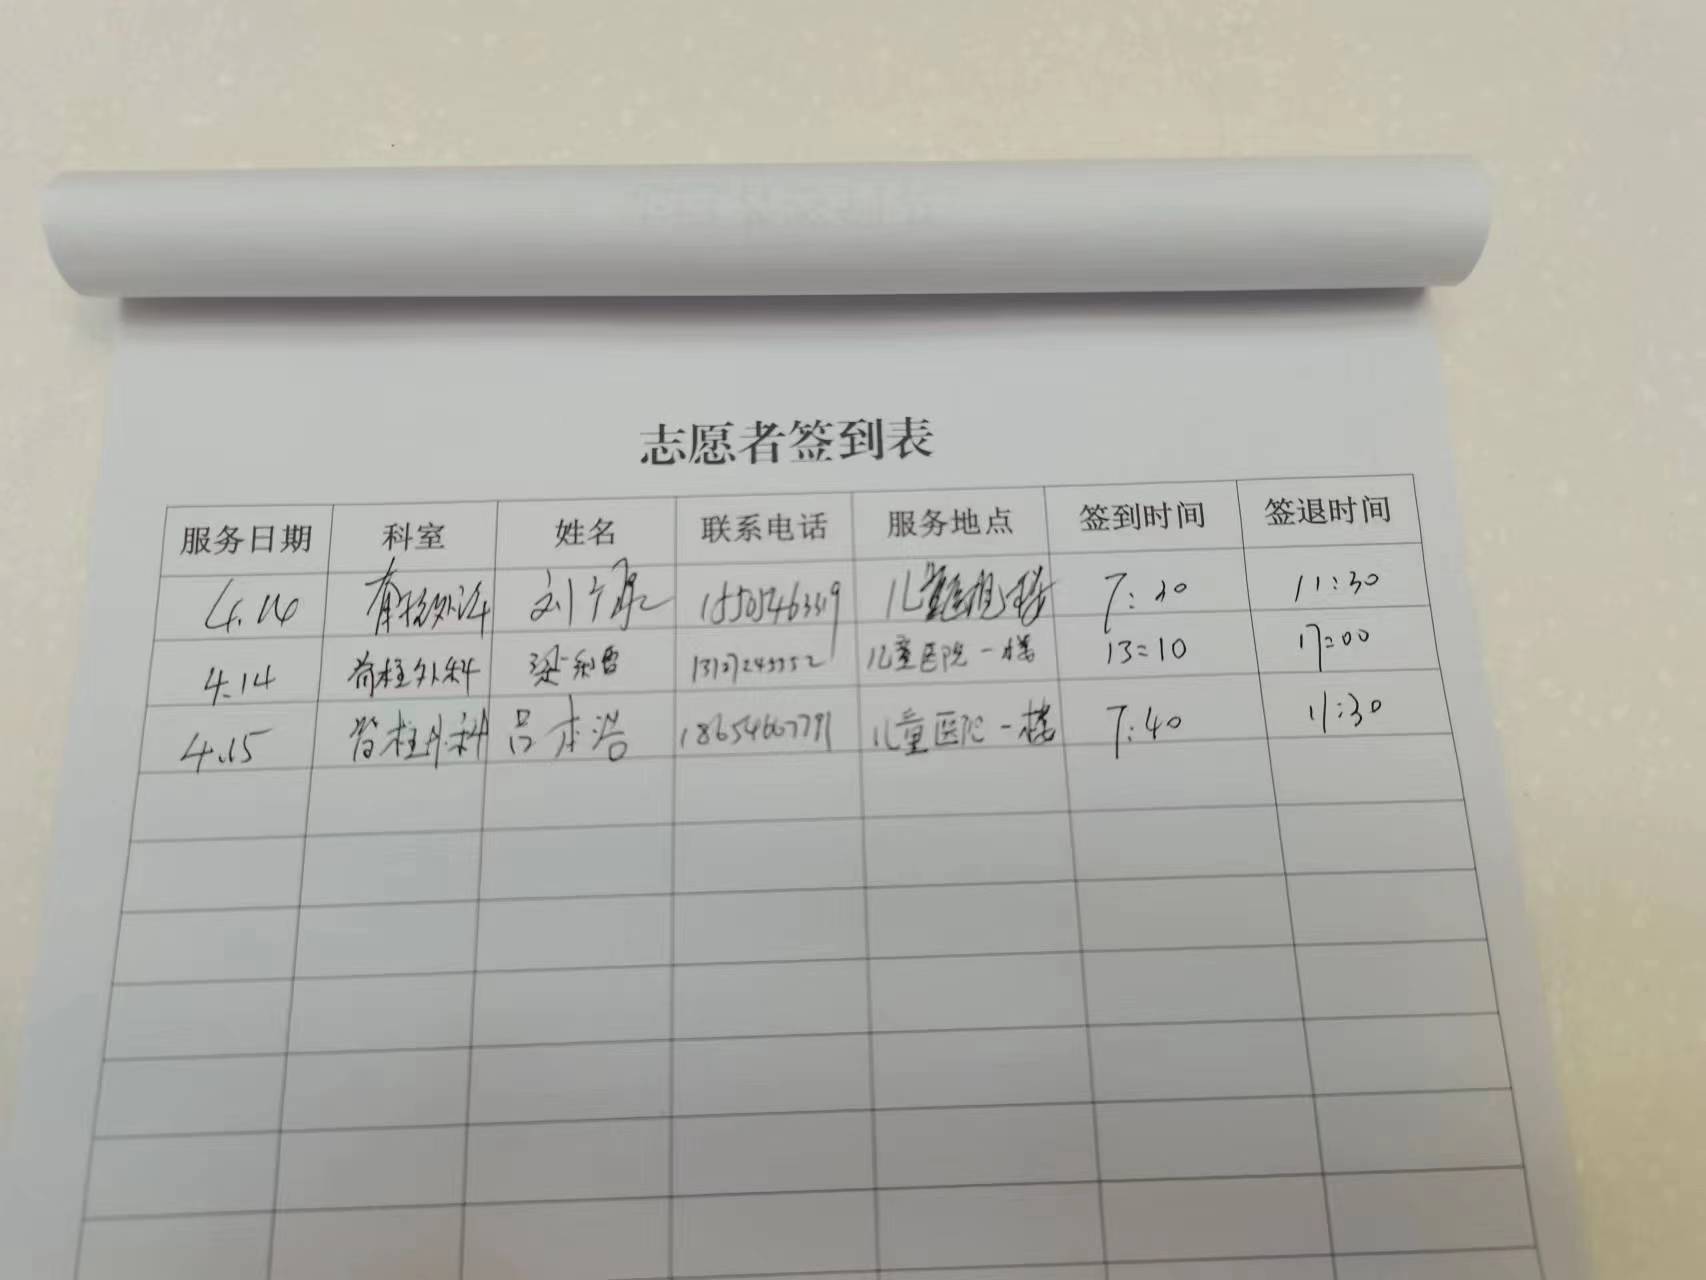 志愿者签到表
服务日期 科室 姓名 联系电话 服务地点 签到时间 签退时间
4.14 刘 7:30 11:30
4.14 脊柱外科 梁 儿童医院一楼 13:10 17:00
4.15 脊柱外科 吕本浩 18654667791 儿童医院一楼 7:40 11:30